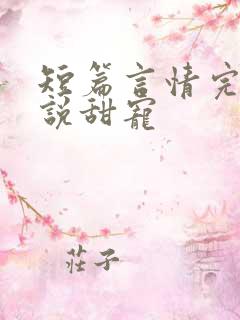 短篇言情完
說甜寵
莊子